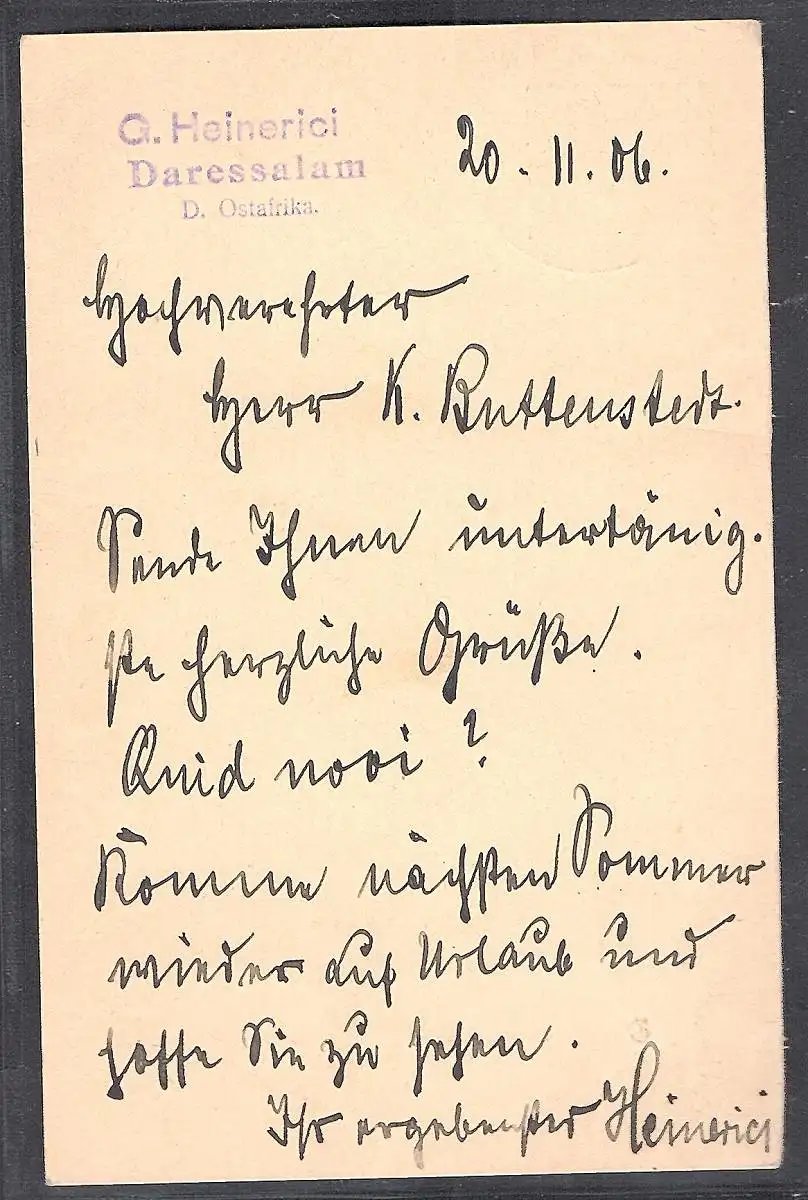 G. Heinerici
Daressalam
D. Ostafrika.
20. 11. 06.
Hochverehrter
Herr K. Buttenstedt.
Sende Ihnen untertänig-
ste herzliche Grüße.
Quid novi?
Komme nächsten Sommer
wieder auf Urlaub und
hoffe Sie zu sehen.
Ihr ergebenster Heinerici